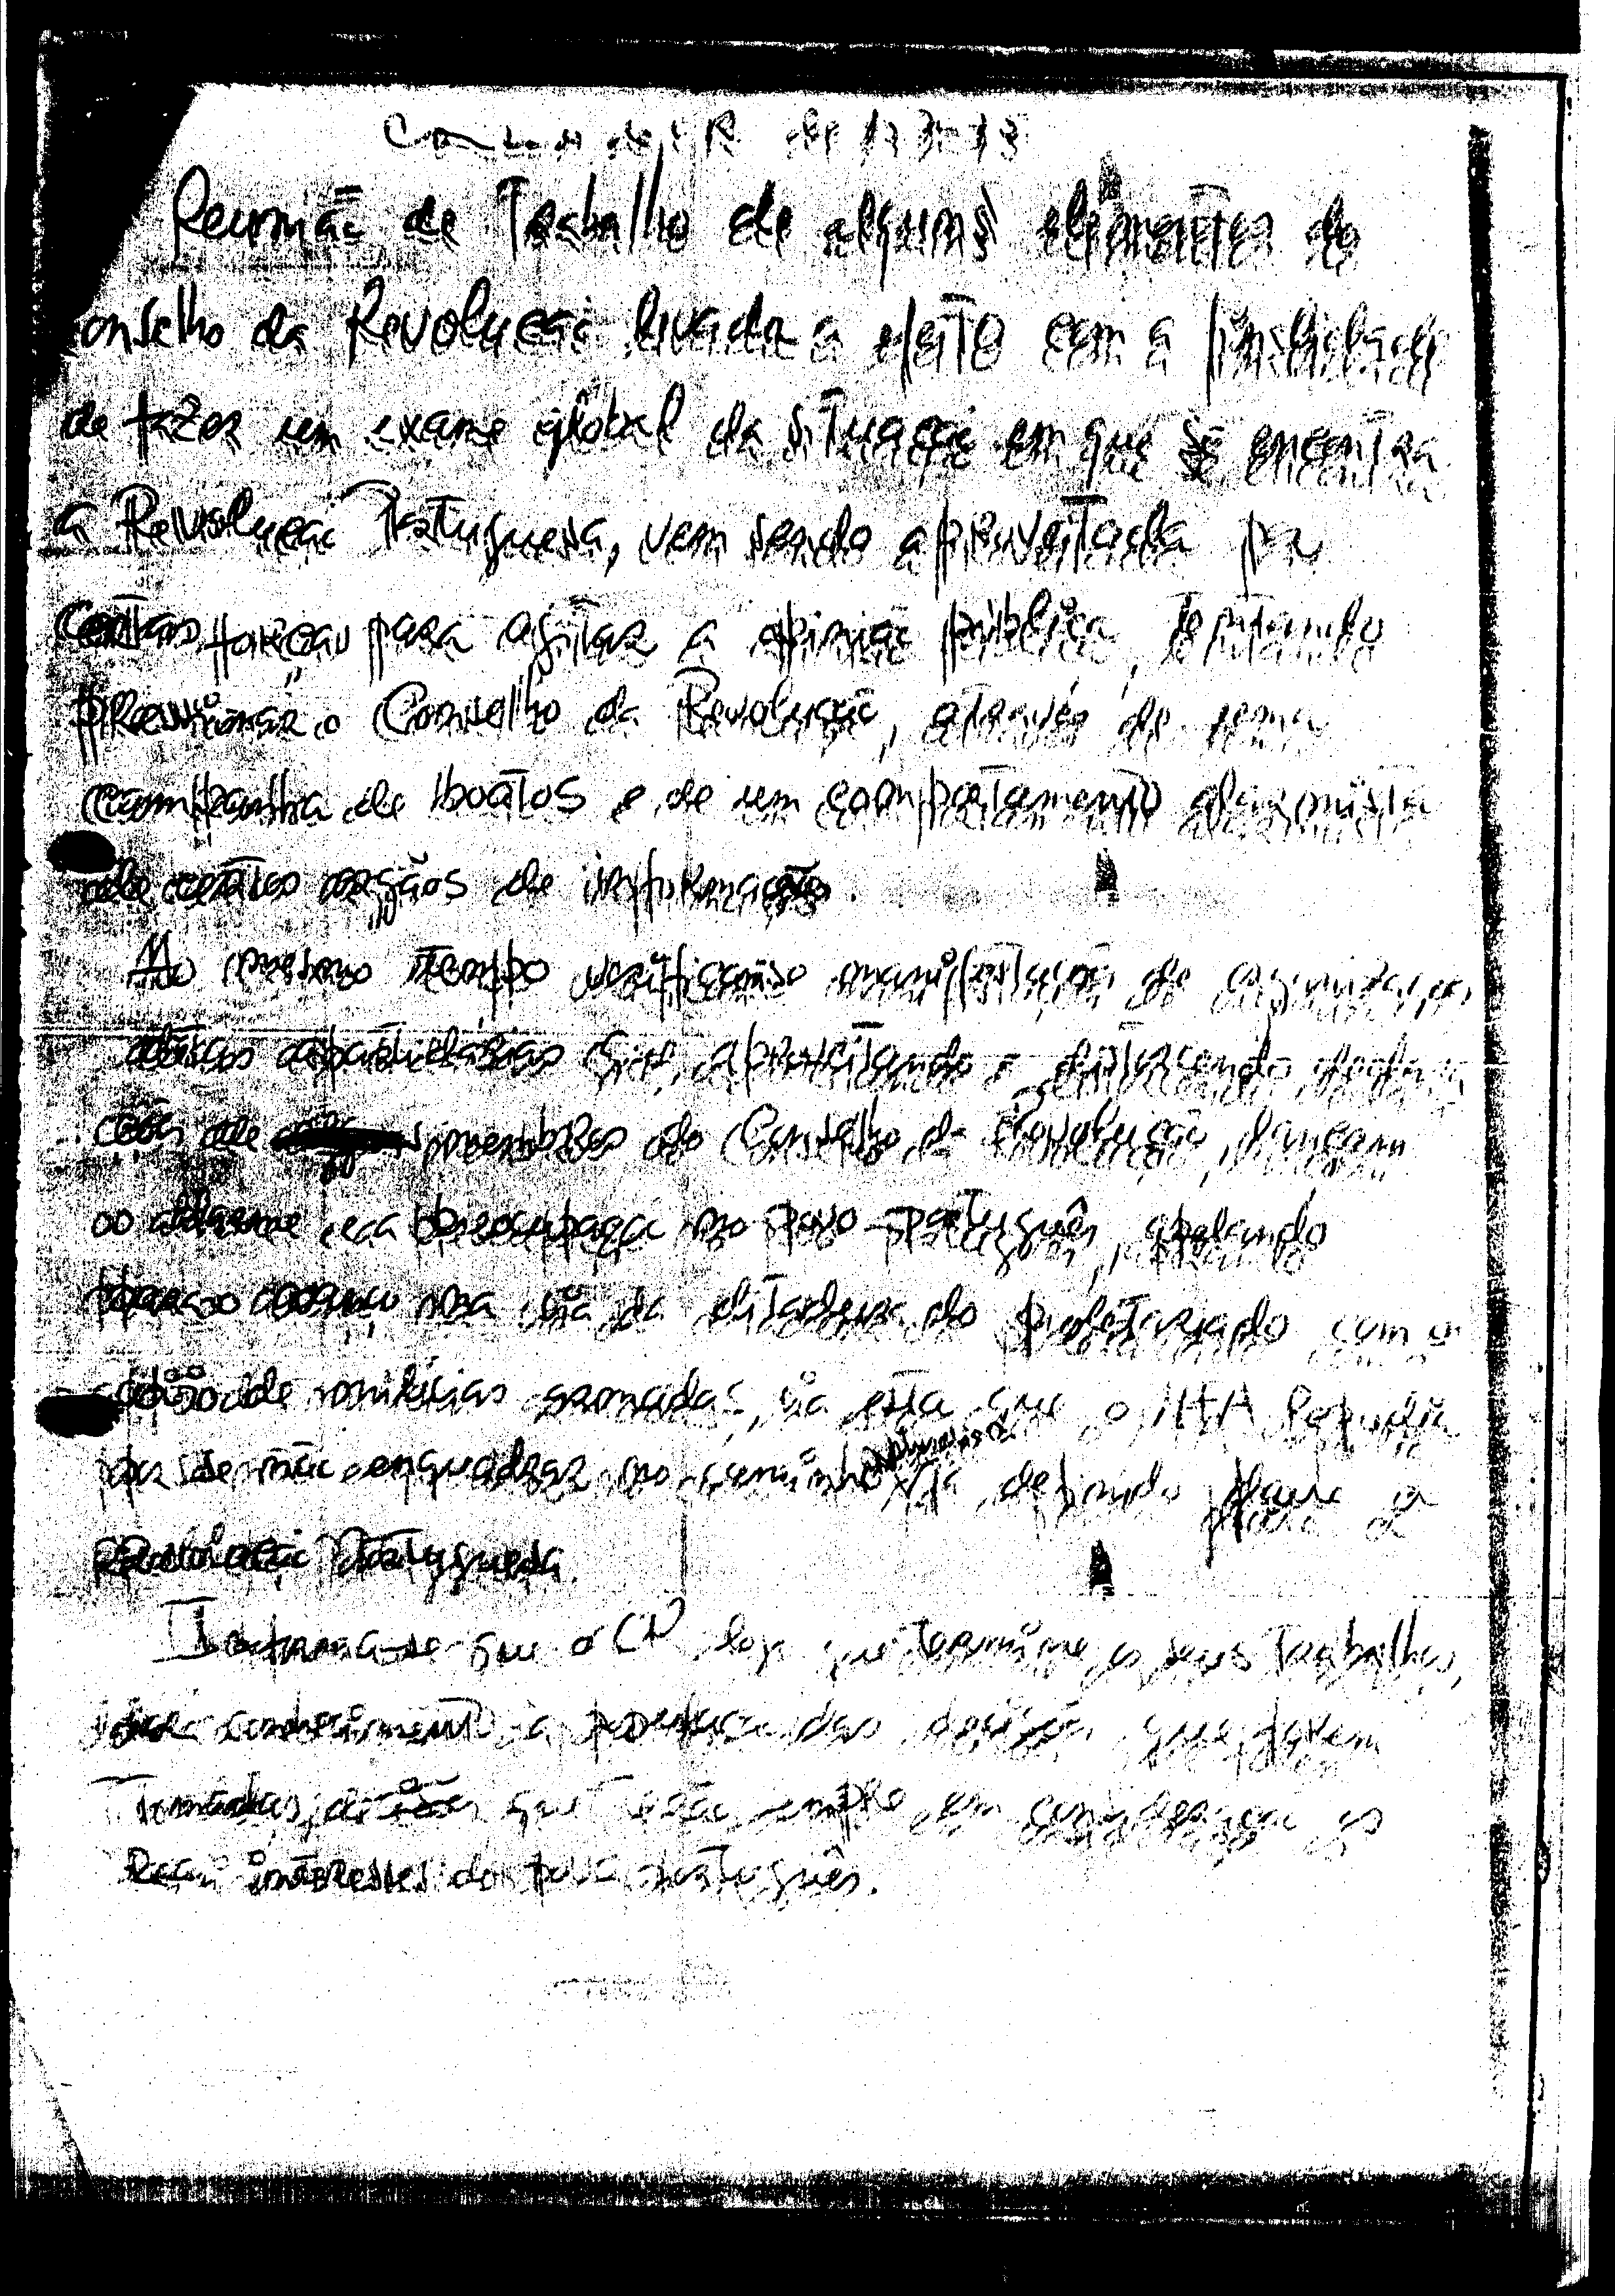 Reunião de Trabalho de alguns elementos do
onselho da Revolução levada a efeito com a finalidade
de fazer um exame global da situação em que se encontra
a Revolução Portuguesa, vem sendo aproveitada por
certas forças para agitar a opinião pública, tentando
pressionar o Conselho da Revolução, através de uma
campanha de boatos e de um comportamento alarmista
de certos orgãos de informação.
Ao mesmo tempo verificam-se manifestações de organizações
ditas apartidárias que, aproveitando e distorcendo declara
ções de membros do Conselho da Revolução, lançam
o alarme e a preocupação no povo português, apelando
para o avanço na via da ditadura do proletariado com a
de milícias armadas, via esta que o MFA Repudia
por se não enquadrar no caminho já definido para a
Revolução Portuguesa.
Informa-se que o CR logo que termine os seus trabalhos,
dará conhecimento à das decisões que forem
Tomadas, decisões que terão sempre em consideração os
Reais interesses do povo português.